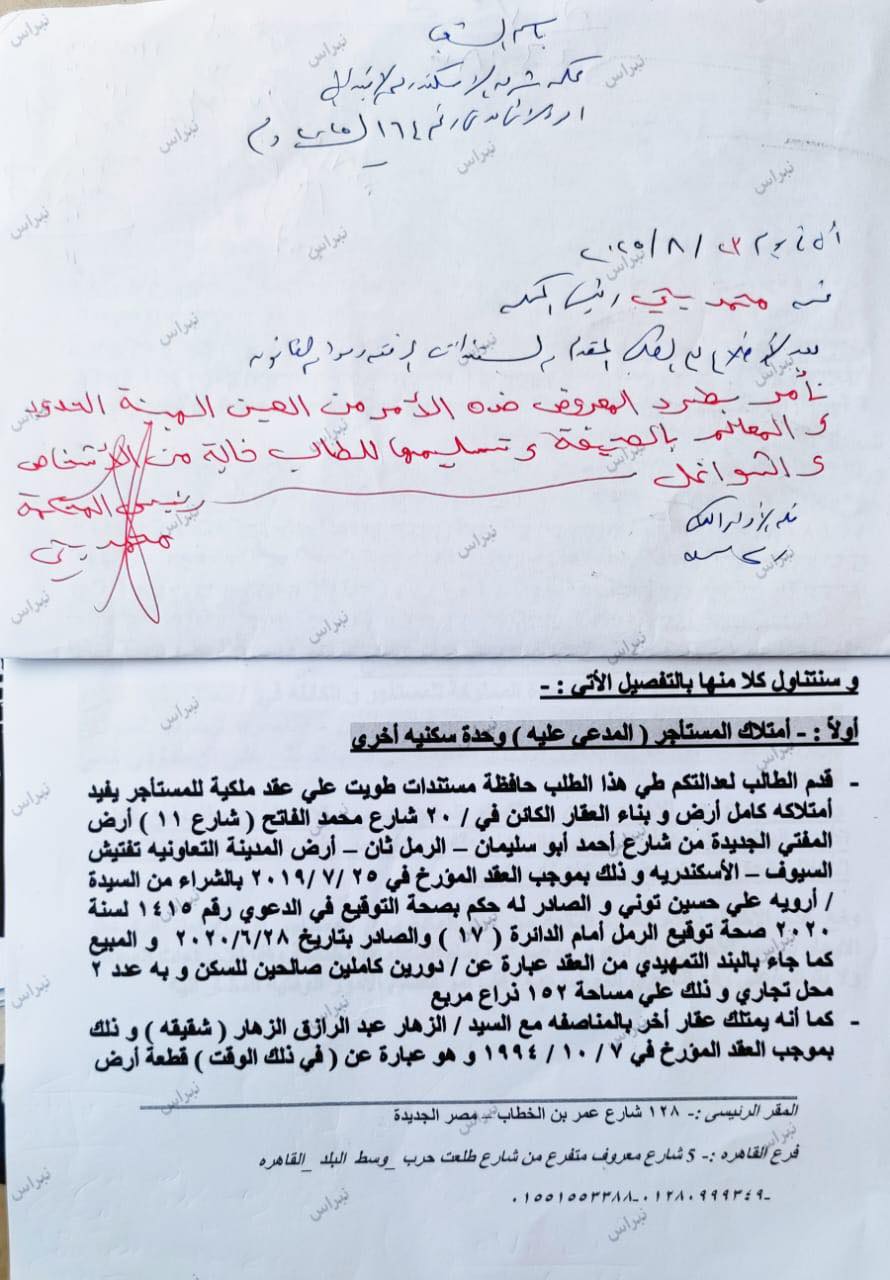 باسم الشعب
محكمة شرق الإسكندرية الابتدائية
رقم ١٦٤ لسنة
انه في يوم ٢٣ / ٨ / ٢٠٢٥
نحن محمد يحيى رئيس المحكمة
بعد الاطلاع على الطلب المقدم والمستندات المرفقة ومواد القانون
نأمر بطرد المعروض ضده الأمر من العين المبينة الحدود
و المعالم بالصحيفة و تسليمها للطالب خالية من الأشخاص
و الشواغل
رئيس المحكمة
محمد يحيى
و سنتناول كلا منها بالتفصيل الأتي : -
أولاً : - أمتلاك المستأجر ( المدعي عليه ) وحدة سكنيه أخرى
- قدم الطالب لعدالتكم طي هذا الطلب حافظة مستندات طويت علي عقد ملكية للمستأجر يفيد
أمتلاكه كامل أرض و بناء العقار الكائن في / ٢٠ شارع محمد الفاتح ( شارع ١١ ) أرض
المفتي الجديدة من شارع أحمد أبو سليمان – الرمل ثان – أرض المدينة التعاونيه تفتيش
السيوف – الأسكندريه و ذلك بموجب العقد المؤرخ في ٢٥ /٧ /٢٠١٩ بالشراء من السيدة
/ أرويه علي حسين توني و الصادر له حكم بصحة التوقيع في الدعوي رقم ١٤١٥ لسنة
٢٠٢٠ صحة توقيع الرمل أمام الدائرة ( ١٧ ) والصادر بتاريخ ٢٠٢٠/٦/٢٨ و المبيع
كما جاء بالبند التمهيدي من العقد عبارة عن / دورين كاملين صالحين للسكن و به عدد ٢
محل تجاري و ذلك علي مساحة ١٥٢ ذراع مربع
- كما أنه يمتلك عقار أخر بالمناصفه مع السيد / الزهار عبد الرازق الزهار ( شقيقه ) و ذلك
بموجب العقد المؤرخ في ٧ / ١٠ / ١٩٩٤ و هو عبارة عن ( في ذلك الوقت ) قطعة أرض
المقر الرئيسى :- ١٢٨ شارع عمر بن الخطاب – مصر الجديدة
فرع القاهره :- 5 شارع معروف متفرع من شارع طلعت حرب _وسط البلد _القاهره
٠١٥٥١٥٥٣٣٨٨-٠١٢٨٠٩٩٩٣٤٩-
نبراس